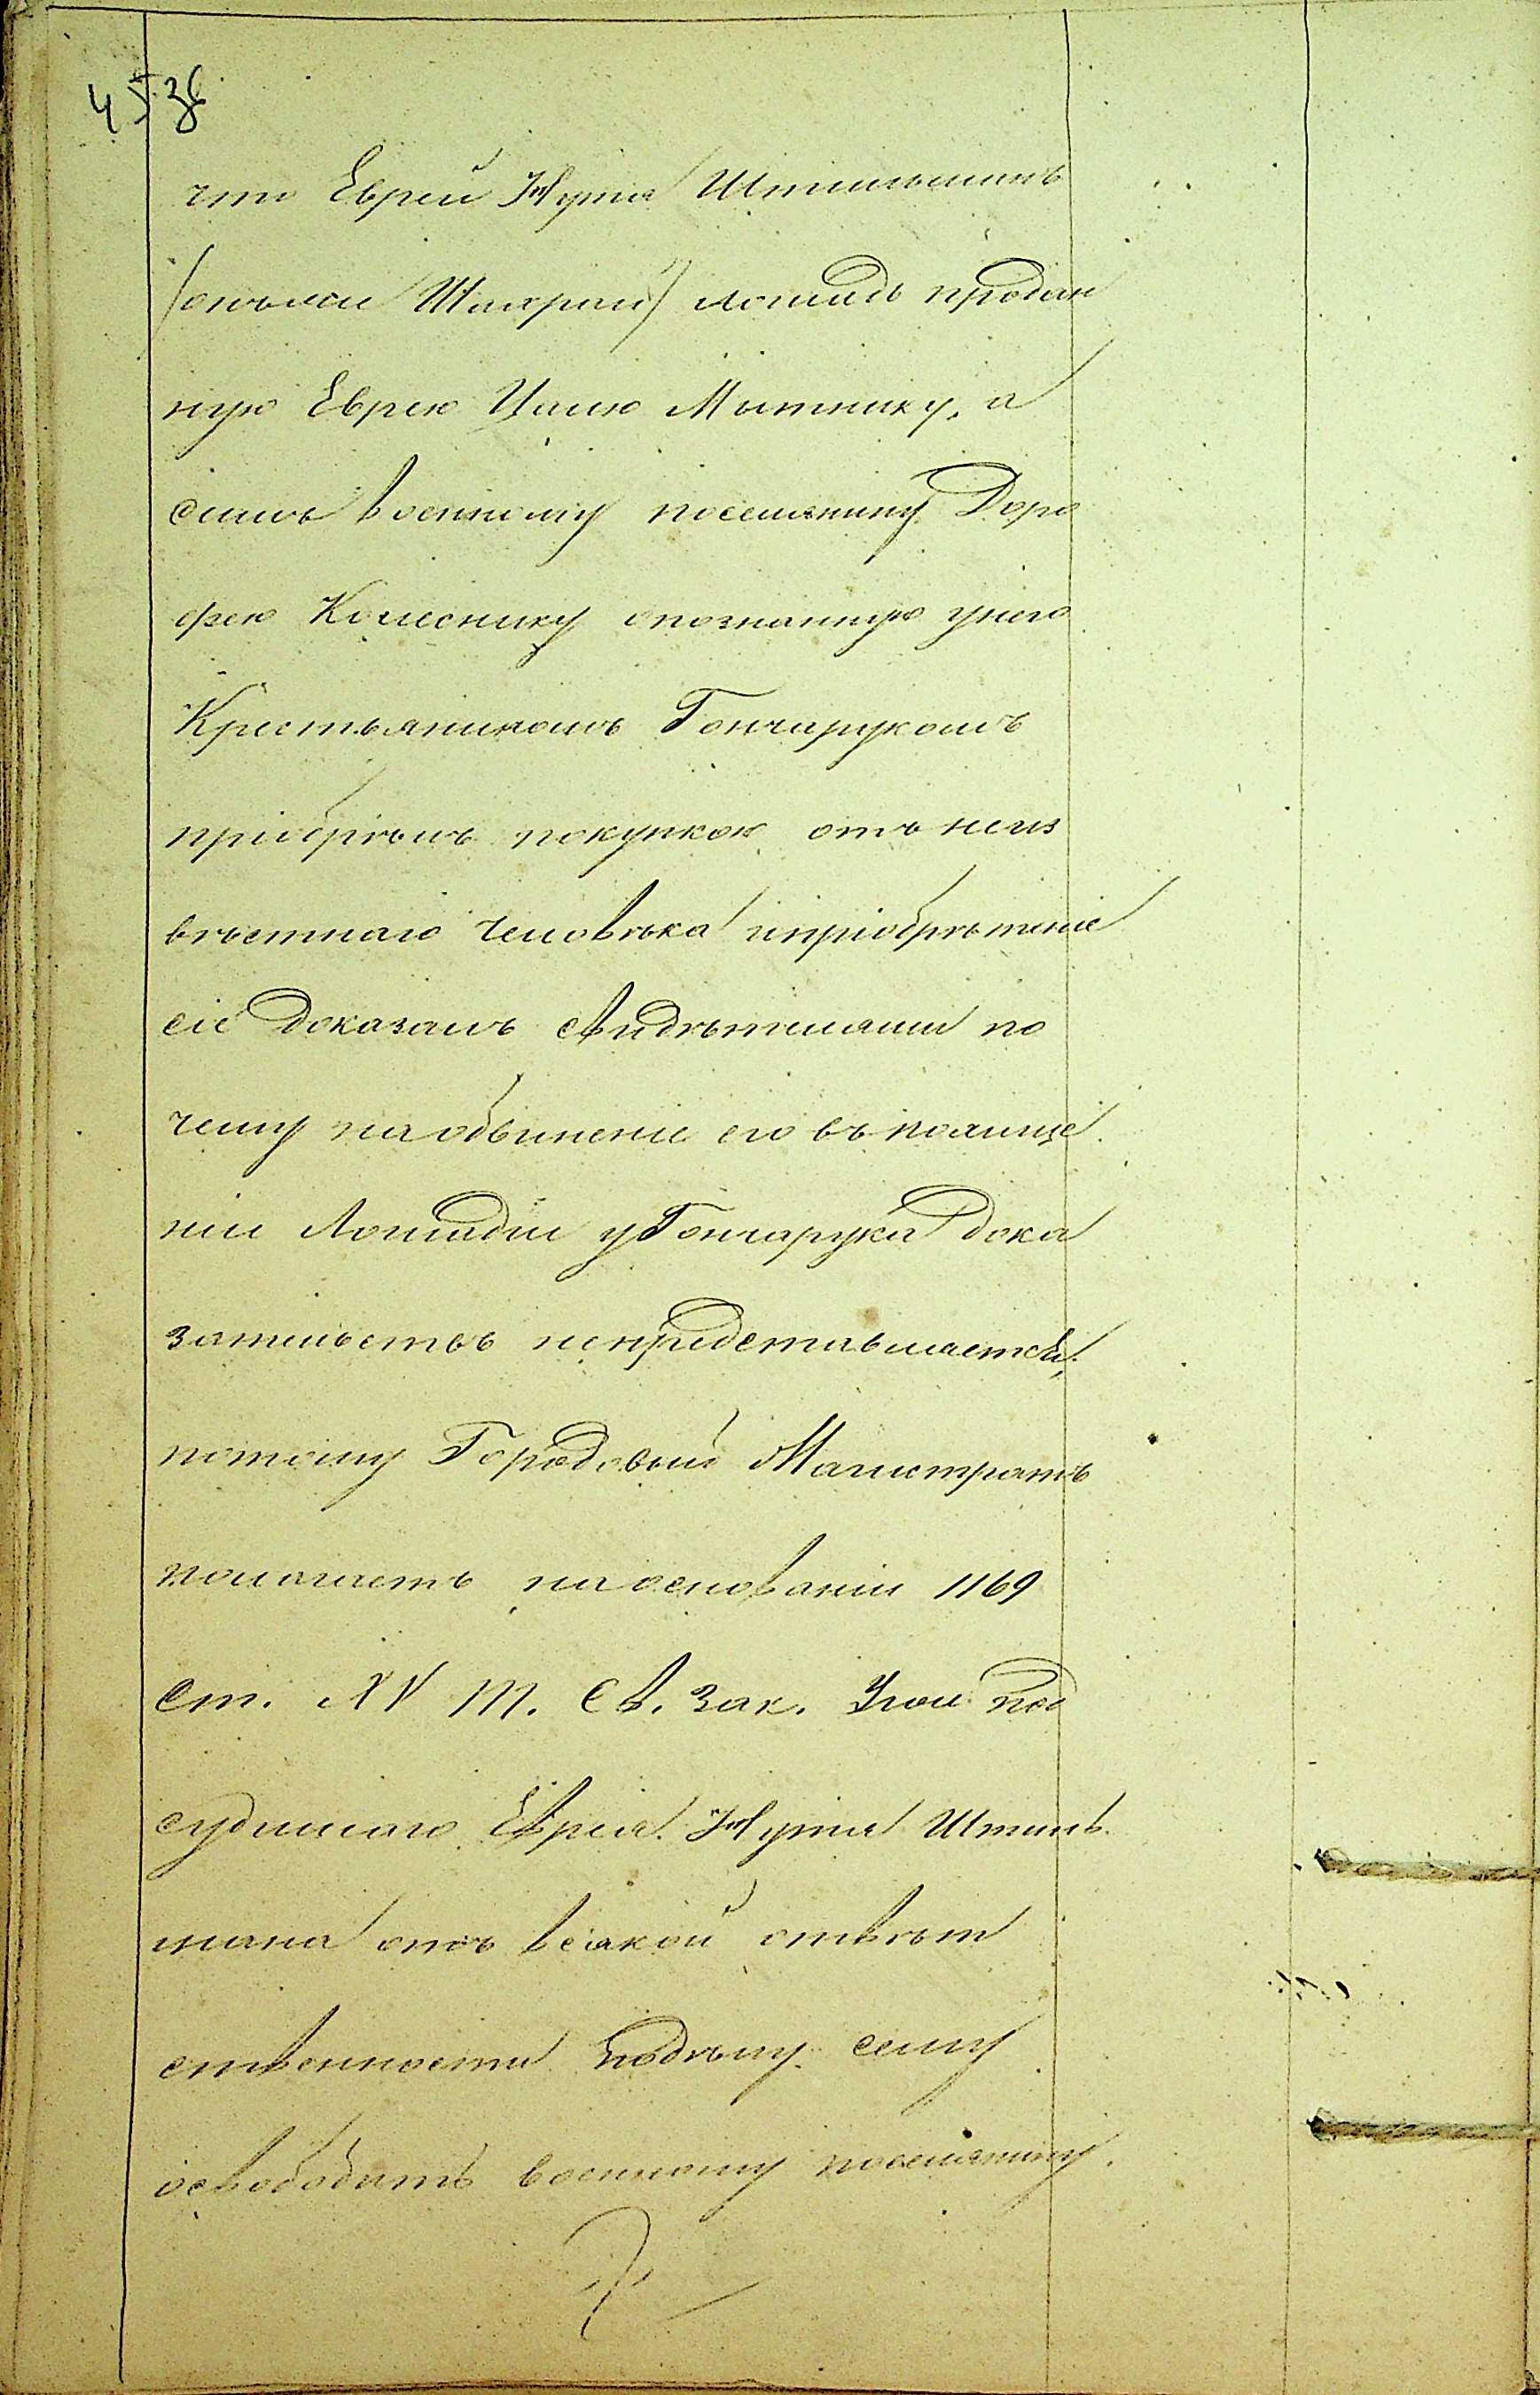 453б
что Еврей Нута Штильманъ
(онъ же Шахрай) лошадь продан
ную Еврею Цалю Мытнику, а
симъ военному поселянину Доро
фею Колеснику опознанную унего
Крестьяниномъ Гончарукомъ
пріобрѣлъ покупкою отъ неиз
вѣстнаго человѣка ипріобрѣтеніе
сіе доказалъ свидѣтелями по
чему на обвиненіе его въ похище
ніи лошади у Гончарука дока
зательствъ непредставляется,
потому Городовый Магистратъ
полагаетъ на основаніи 1169
ст. XV т. Св. Зак. Угол. под
судимаго Еврея Нута Штиль
мана отъ всякой отвѣт
ственности по дѣлу сему
освободить военному поселянину.